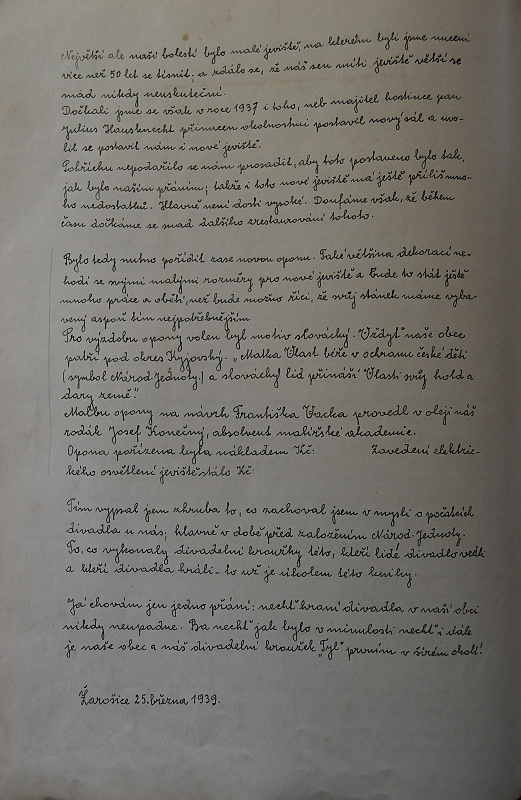 Největší ale naší bolestí bylo malé jeviště, na kterém byli jsme nuceni
více než 50 let se tísnit, a zdálo se, že náš sen míti jeviště větší se
snad nikdy neuskuteční.
Dočkali jsme se však v roce 1937 i toho, neb majitel hostince pan
Julius Hausknecht přinucen okolnostmi postavil nový sál a uvo-
lil se postavit nám i nové jeviště.
Pohříchu nepodařilo se nám prosadit, aby toto postaveno bylo tak,
jak bylo naším přáním; takže i toto nové jeviště má ještě příliš mno-
ho nedostatků. Hlavně není dosti vysoké. Doufáme však, že během
času dočkáme se snad dalšího zrestaurování tohoto.
Bylo tedy nutno pořídit zase novou oponu. Také většina dekorací ne-
hodí se svými malými rozměry pro nové jeviště a bude to stát ještě
mnoho práce a obětí, než bude možno říci, že svůj stánek máme vyba-
vený aspoň tím nejpotřebnějším
Pro výzdobu opony volen byl motiv slovácký. Vždyť naše obec
patří pod okres Kyjovský. „Matka Vlast béře v ochranu české děti
(symbol Národ. Jednoty.) a slovácký lid přináší Vlasti svůj hold a
dary země."
Malbu opony na návrh Františka Vacka provedl v oleji náš
rodák Josef Konečný, absolvent malířské akademie.
Opona pořízena byla nákladem Kč: Zavedení elektric-
kého osvětlení jeviště stálo Kč:
Tím vypsal jsem zhruba to, co zachoval jsem v mysli o počátcích
divadla u nás, hlavně v době před založením Národ. Jednoty.
To, co vykonaly divadelní kroužky této, kteří lidé divadlo vedli
a kteří divadla hráli - to už je úkolem této knihy.
Já chovám jen jedno přání: nechť hraní divadla v naší obci
nikdy neupadne. Ba nechť jak bylo v minulosti nechť i dále
je naše obec a náš divadelní kroužek „Tyl" prvním v širém okolí!
Žarošice 25. března 1939.